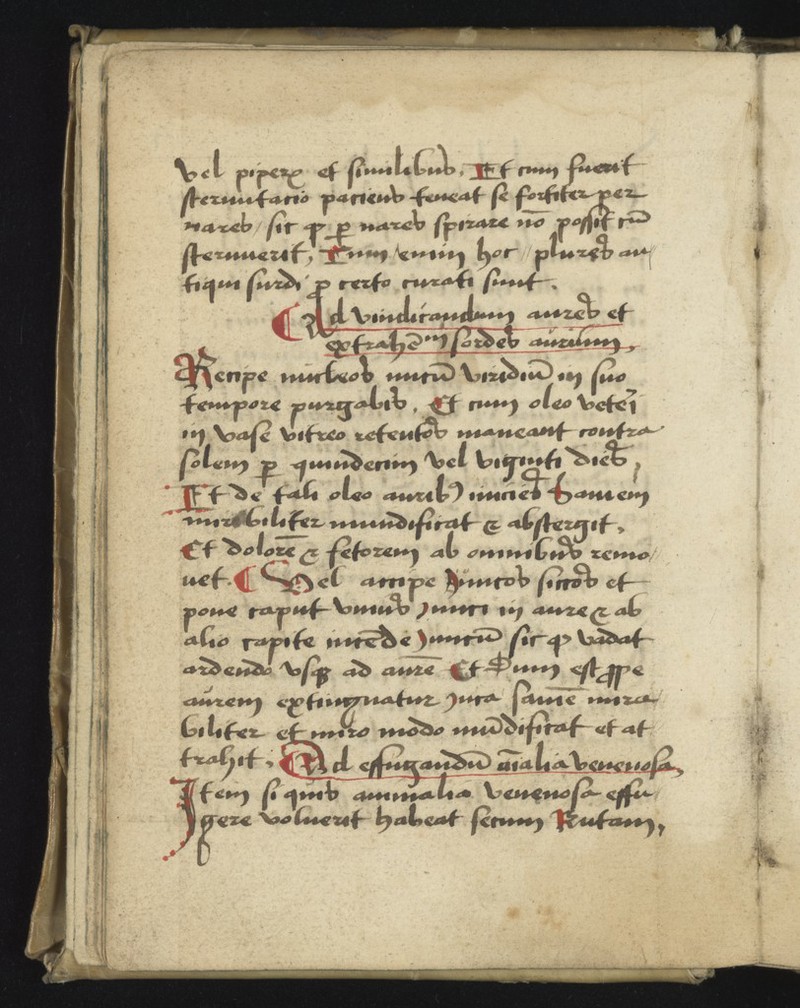 vel piperꝫ et similibus. Et cum fuerit
sternutacio paciens teneat se fortiter per
nares / sic ꝙ ꝑ nares spirare nō possit cū
sternuerit. Cum enim hoc / plures an
tiqui surdi ꝓ certo curati sunt.
Ad vindicandum aures et
extrahēᵐ sordes aurium,
Recipe nucleos nucū viridiū in suo
tempore purgabis. Et cum oleo vetei
in vase vitreo retentos maneant contra
solem ꝑ quindecim vel viginti dies,
Et de tali oleo auribꝰ inicies Saniem
mirabiliter mundificat & abstergit,
Et dolorē & fetorem ab omnibus remo
uet. Vel accipe Juncos siccos et
pone caput vnius Junci in aure & ab
alio capite incēde Juncū sic ꝙ vadat
ardendo vsqꝫ ad aurē Et Dum est ꝓpe
aurem extinguatur saniē mira
biliter et miro modo mūdificat et at
trahit, Ad effugandū aīalia venenosa,
Item si quis animalia venenosa effu
gere voluerit habeat secum Rutam,